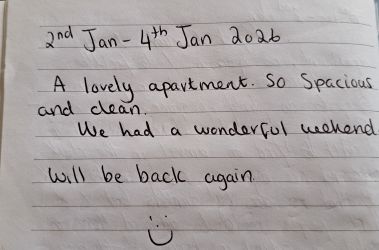 2nd Jan - 4th Jan 2026
A lovely apartment. So Spacious
and clean.
We had a wonderful weekend
Will be back again.